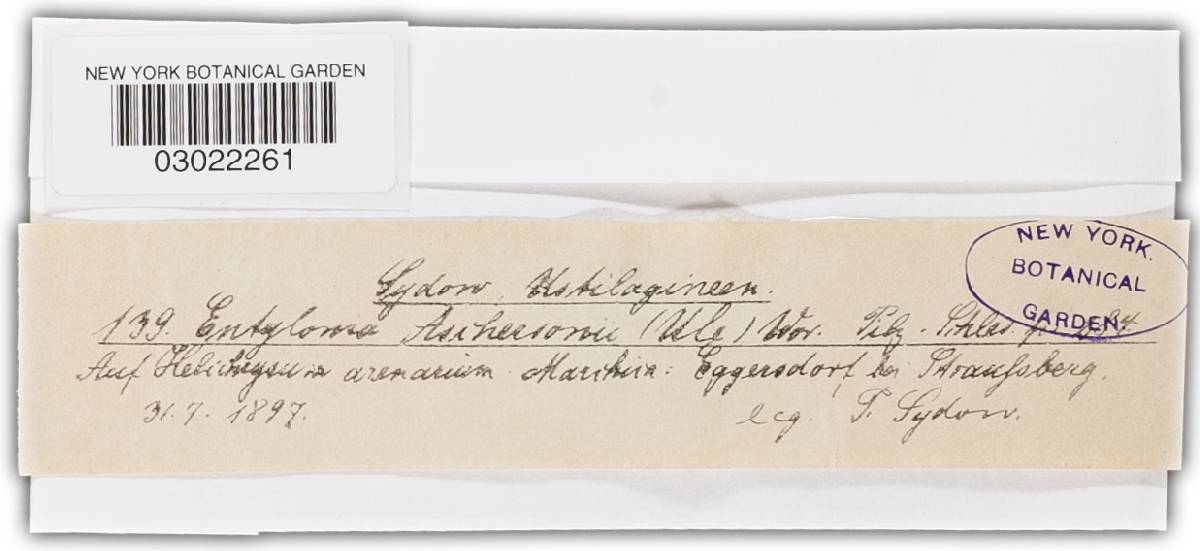 NEW YORK BOTANICAL GARDEN
03022261
NEW YORK
BOTANICAL
GARDEN
Sydow, Ustilagineen.
139. Entyloma Aschersonii (Ule) Wor. Pilz. Schles. p.
Auf Helichrysum arenarium. Eggersdorf bei Straußberg.
31.7. 1897. leg. P. Sydow.